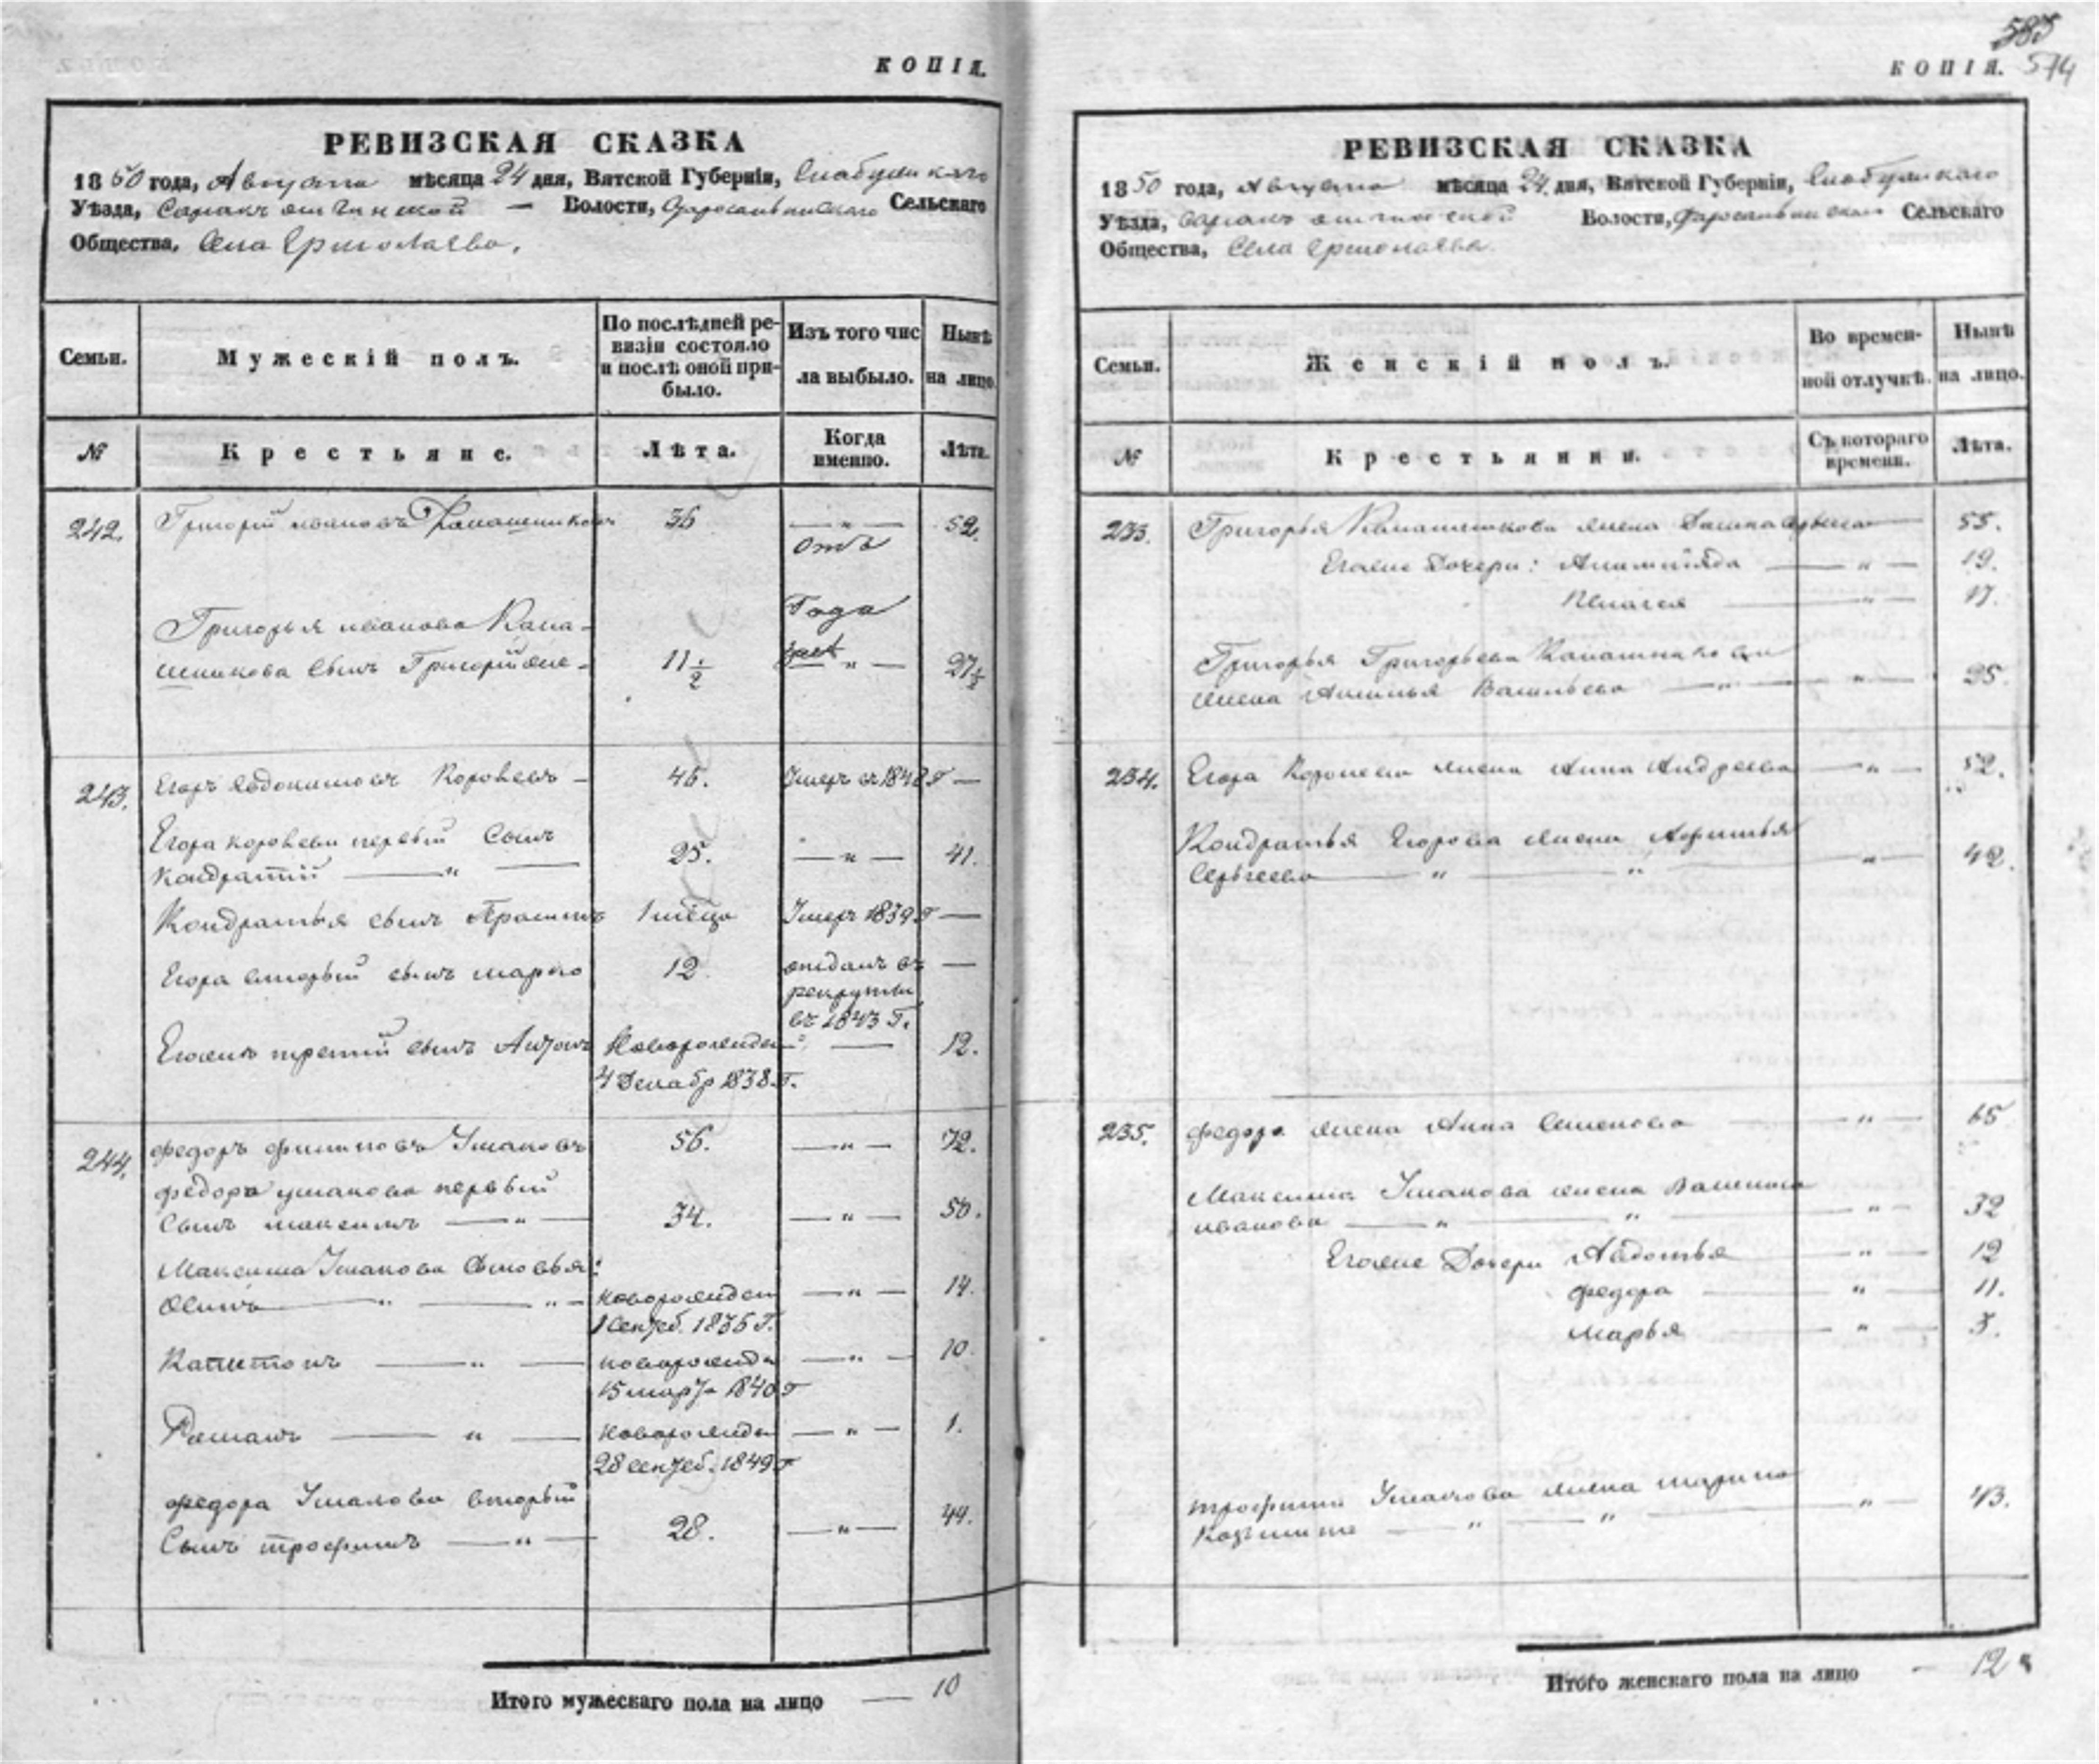 КОПІЯ.
РЕВИЗСКАЯ СКАЗКА
1850 года, Августа мѣсяца 24 дня, Вятской Губерніи,
Уѣзда, — Волости, Сельскаго
Общества, Села
Семьи.
Мужескій полъ.
По послѣдней ре-
визіи состояло
и послѣ оной при-
было.
Изъ того чис
ла выбыло.
Нынѣ
на лицо.
№
Крестьяне.
Лѣта.
Когда
именно.
Лѣта.
242. Григорій Ивановъ 36 — „ — 52.
Года
Григорья Иванова Кала-
шникова сынъ Григорій же - 11 1/2 — „ — 27 1/2
243. Егоръ Евдокимовъ Коровевъ - 45. Умеръ въ 1848 Г —
Егора Коровева первый сынъ
Кондратій — „ — 25. — „ — 41.
Кондратья сынъ 1 Умеръ 1839 Г —
Егора вторый сынъ Марко 12 отданъ въ —
рекруты
въ 1843 Г.
Егоже третій сынъ Антонъ Новорожден — 12.
4 Декабр 1838. Г.
244. Федоръ Филиповъ Ушаковъ 56. — „ — 72.
Федора Ушакова первый
сынъ Максимъ — „ — 34. — „ — 50.
Максима Ушакова сыновья:
Осипъ — „ — „ — новорожден — „ — 14.
1 Сентеб. 1836 Г.
Капитонъ — „ — новорожде — „ — 10.
15 марта 1840 Г
Романъ — „ — новорожде — „ — 1.
28 сентеб. 1849 Г
Федора Ушакова вторый
Сынъ Трофимъ — „ — 28. — „ — 44.
Итого мужескаго пола на лицо — 10
585
КОПІЯ. 574
РЕВИЗСКАЯ СКАЗКА
1850 года, Августа мѣсяца 24 дня, Вятской Губерніи,
Уѣзда, Волости, Сельскаго
Общества, Села
Семьи.
Женскій полъ.
Во времен-
ной отлучкѣ.
Нынѣ
на лицо.
№
Крестьянки.
Съ котораго
времени.
Лѣта.
233. Григорья Калашникова жена — 55.
Егоже Дочери: — „ — 19.
Пелагея — „ — 17.
Григорья Григорьева Калашникова
жена Васильева — „ — „ — 25.
234. Егора Коровева жена Анна Андреева — „ — 52.
Кондратья Егорова жена Афимья
Сергеева — „ — „ — „ — 42.
235. Федора жена Анна Семенова — „ — 65
Максима Ушакова жена
Иванова — „ — „ — „ — 32
Егоже Дочери Авдотья — „ — 12
Федора — „ — 11.
Марья — „ — 3.
Трофима Ушакова жена Марина
Козьмина — „ — „ — „ — 43.
Итого женскаго пола на лицо — 12